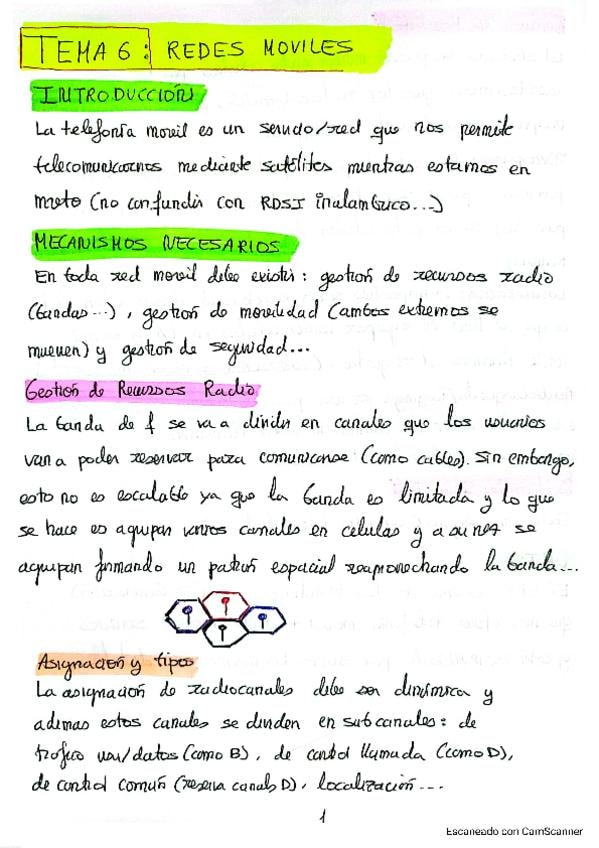 TEMA 6: REDES MOVILES
INTRODUCCIÓN
La telefonía movil es un servicio/red que nos permite
telecomunicarnos mediante satélites mientras estamos en
mvto (no confundir con RDSI inalambrico...)
MECANISMOS NECESARIOS
En toda red movil debe existir: gestión de recursos radio
(bandas...), gestión de movilidad (ambos extremos se
mueven) y gestión de seguridad...
Gestión de Recursos Radio
La banda de f se va a dividir en canales que los usuarios
van a poder reservar para comunicarse (como cables). Sin embargo,
esto no es escalable ya que la banda es limitada y lo que
se hace es agrupar varios canales en celulas y a su vez se
agrupan formando un patrón espacial reaprovechando la banda...
Asignación y tipos
La asignación de radiocanales debe ser dinámica y
ademas estos canales se dividen en subcanales: de
trafico voz/datos (como B), de control llamada (como D),
de control común (reserva canals D), localización...
1
Escaneado con CamScanner